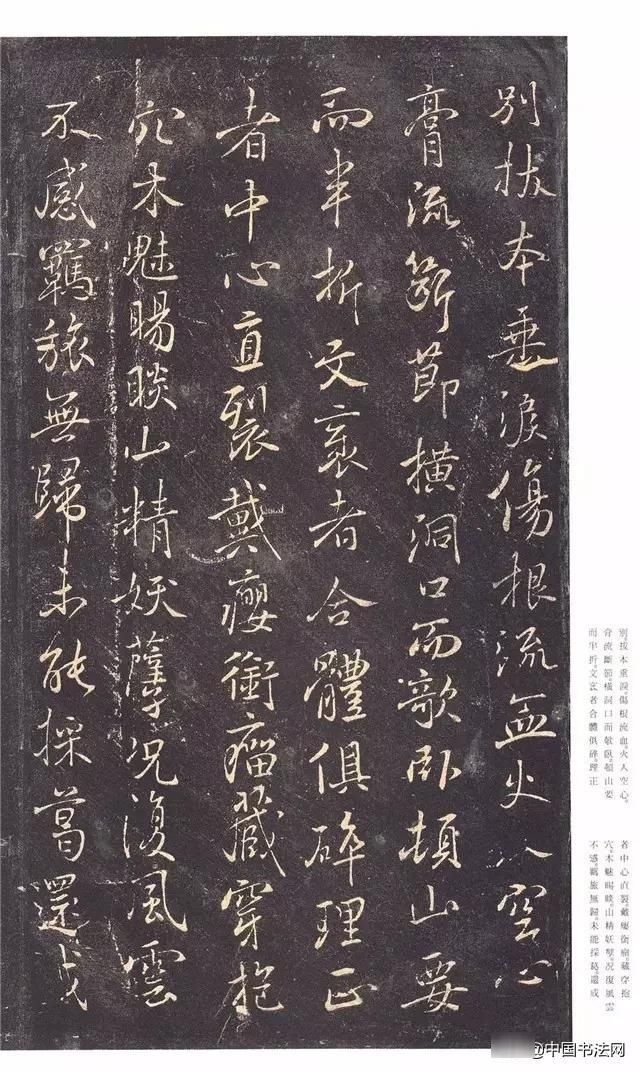 別拔本垂淚傷根流血火入空心
膏流斷節橫洞口而欹臥頓山要
而半折文袤者合體俱碎理正
者中心直裂戴癭銜瘤藏穿抱
穴木魅睗睒山精妖孽況復風雲
不感羈旅無歸未能採葛還成
別。拔本垂淚。傷根流血。火入空心。
膏流斷節。橫洞口而欹臥。頓山要
而半折。文袤者合體俱碎。理正
者中心直裂。戴癭銜瘤。藏穿抱
穴。木魅睗睒。山精妖孽。況復風雲
不感。羈旅無歸。未能採葛。還成
@中国书法网